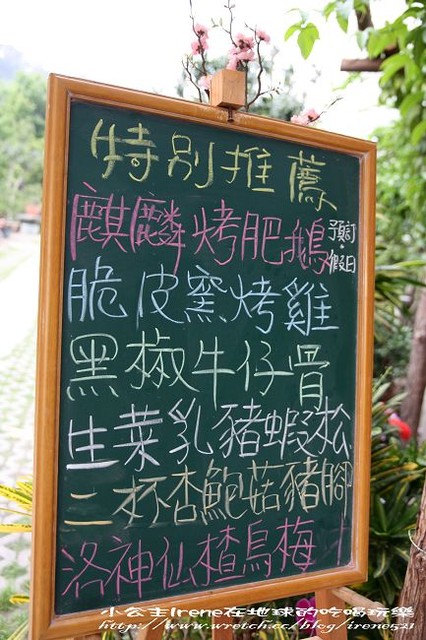 特別推薦
麒麟烤肥鵝 預訂・假日
脆皮窯烤雞
黑椒牛仔骨
生菜乳豬蝦松
三杯杏鮑菇豬腳
洛神仙楂烏梅汁
小公主Irene在地球的吃喝玩樂
http://www.wretch.cc/blog/irene521